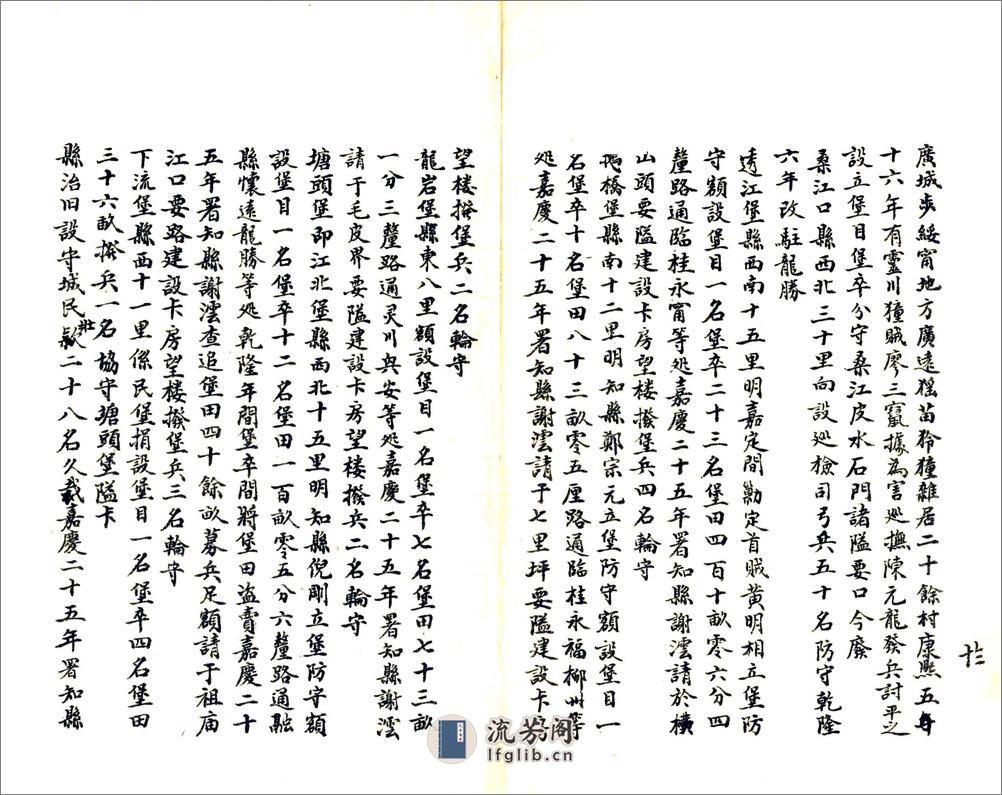 廣城步綏甯地方廣遠猺苗狑獞雜居二十餘村康熙五
十六年有靈川獞賊廖三竄據為害巡撫陳元龍發兵討平之
設立堡目堡卒分守桑江皮水石門諸隘要口今廢
桑江口縣西北三十里向設巡檢司弓兵五十名防守乾隆
六年改駐龍勝
透江堡縣西南十五里明嘉定間勦定首賊黃明相立堡防
守額設堡目一名堡卒二十三名堡田四百十畝零六分四
釐路通臨桂永甯等処嘉慶二十五年署知縣謝澐請於橫
山頭要隘建設卡房望楼撥堡兵四名輪守
橋堡縣南十二里明知縣鄭宗元立堡防守額設堡目一
名堡卒十名堡田八十三畝零五厘路通臨桂永福柳州等
処嘉慶二十五年署知縣謝澐請于七里坪要隘建設卡房
望楼撥堡兵二名輪守
龍岩堡縣東八里額設堡目一名堡卒七名堡田七十三畝
一分三釐路通灵川兴安等処嘉慶二十五年署知縣謝澐
請于毛皮界要隘建設卡房望楼撥兵二名輪守
塘頭堡即江北堡縣西北十五里明知縣倪剛立堡防守額
設堡目一名堡卒十二名堡田一百畝零五分六釐路通融
縣懷遠龍勝等処乾隆年間堡卒間將堡田盜賣嘉慶二十
五年署知縣謝澐查追堡田四十餘畝募兵足額請于祖庙
江口要路建設卡房望楼撥堡兵三名輪守
下流堡縣西十一里係民堡捐設堡目一名堡卒四名堡田
三十六畝撥兵一名協守塘頭堡隘卡
縣治旧設守城民壯二十八名久裁嘉慶二十五年署知縣
十三
流芳阁
lfglib.cn